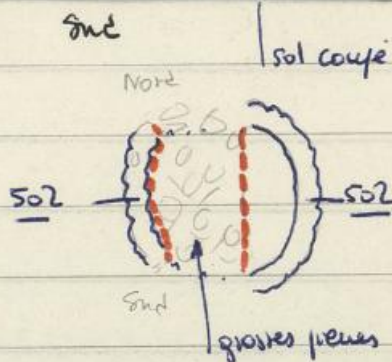 Sud
sol coupé
Nord
502
502
Sud
grosses pierres